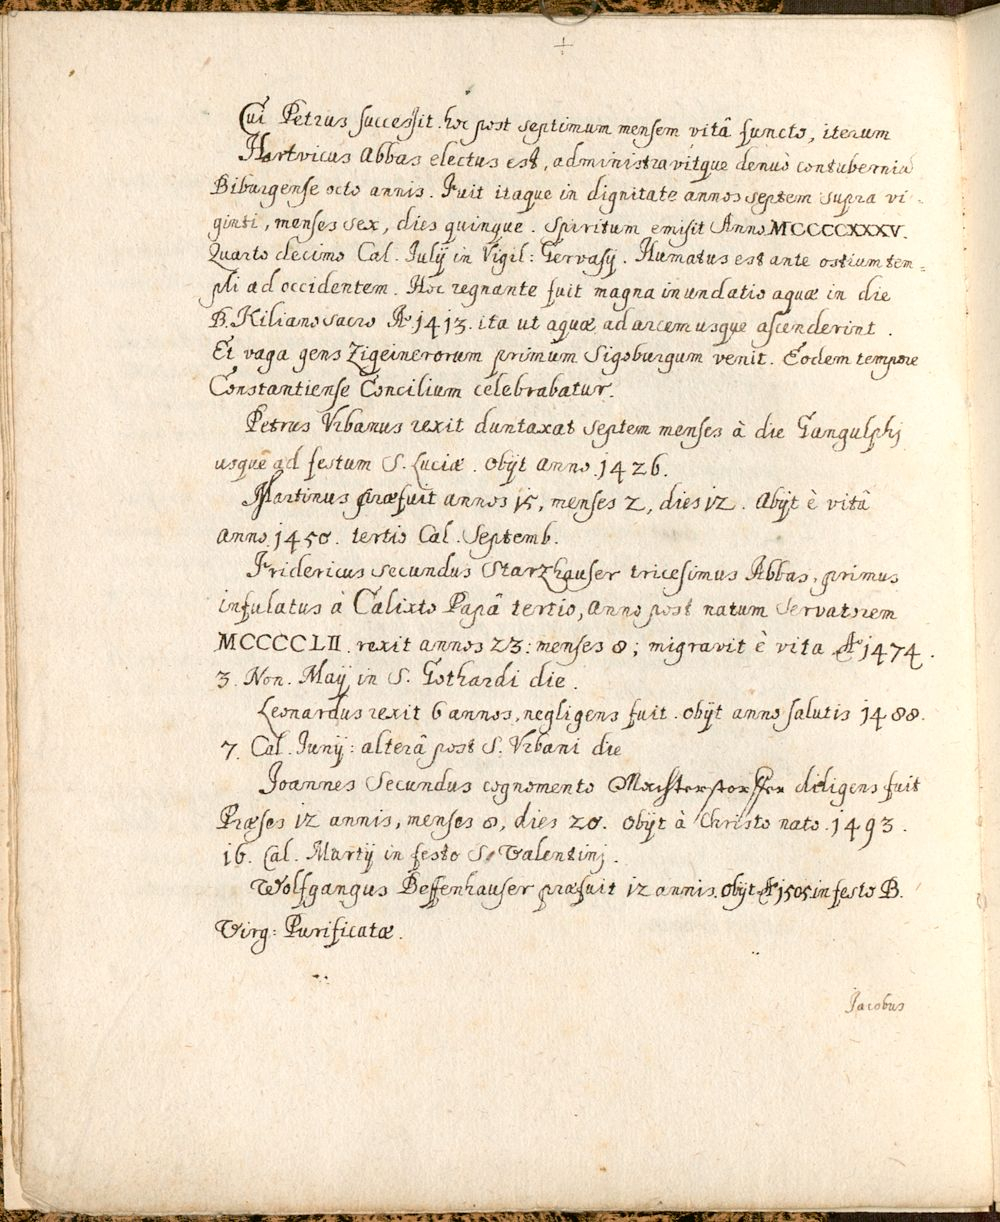 Cui Petrus successit. hoc post septimum mensem vitâ functo, iterum
Hartvicus Abbas electus est, administravitque denuò contubernia
Biburgense octo annis. Fuit itaque in dignitate annos septem supra vi-
ginti, menses sex, dies quinque. Spiritum emisit Anno MCCCCXXXV.
Quarto decimo Cal. Julij in Vigil: Gervasij. Humatus est ante ostium tem-
pli ad occidentem. Hoc regnante fuit magna inundatio aquæ in die
B. Kiliano sacro Aº 1413. ita ut aquæ ad arcem usque ascenderint.
Et vaga gens Zigeinerorum primum Sigsburgum venit. Eodem tempore
Constantiense Concilium celebrabatur.
Petrus Vrbanus rexit duntaxat septem menses à die Gangulphj
usque ad festum S. Luciæ. Obijt anno 1426.
Martinus præfuit annos 15, menses 2, dies 12. Abijt è vitâ
anno 1450. tertio Cal. Septemb.
Fridericus secundus Starzhauser tricesimus Abbas, primus
infulatus à Calixto Papâ tertio, anno post natum Servatorem
MCCCCLII. rexit annos 23: menses 8; migravit è vita Aº 1474.
3. Non. Maij in S. Gothardi die.
Leonardus rexit 6 annos, negligens fuit. Obijt anno salutis 1488.
7. Cal. Junij: alterâ post S. Vrbani die
Joannes Secundus cognomento diligens fuit
Præses 12 annis, menses 8, dies 20. Obijt à Christo nato. 1493.
16. Cal. Martij in festo S. Valentinj.
Wolfgangus Beffenhauser præfuit 12 annis. Obijt Aº 1505 in festo B.
Virg: Purificatæ.
Jacobus